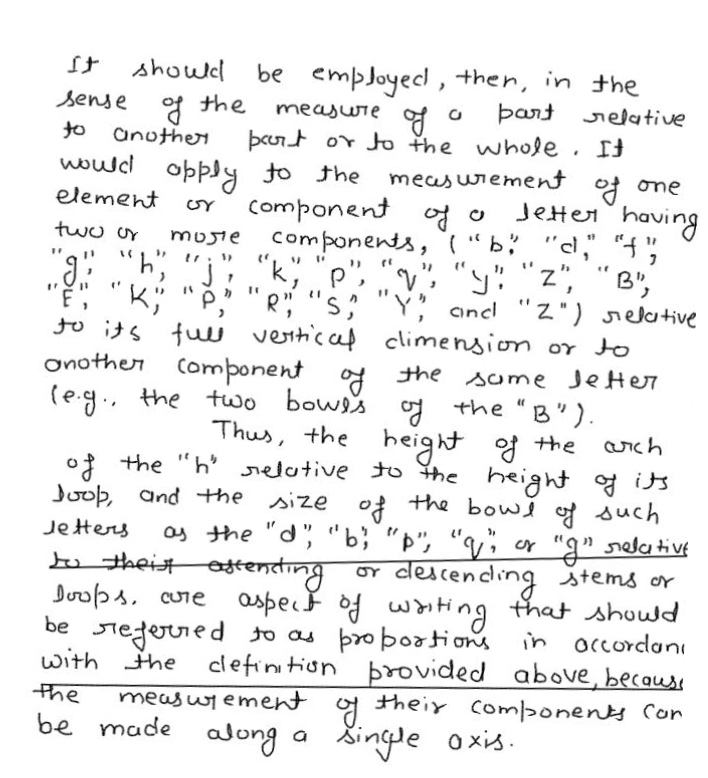 It should be employed, then, in the
sense of the measure of a part relative
to another part or to the whole. It
would apply to the measurement of one
element or component of a letter having
two or more components, ("b", "d," "f",
"g", "h", "j", "k", "p", "q", "y", "z", "B",
"E", "K", "P," "R", "S," "Y", and "Z") relative
to its full vertical dimension or to
another component of the same letter
(e.g., the two bowls of the "B").
Thus, the height of the arch
of the "h" relative to the height of its
loop, and the size of the bowl of such
letters as the "d", "b", "p", "q", or "g" relative
to their ascending or descending stems or
loops, are aspect of writing that should
be referred to as proportions in accordanc
with the definition provided above, because
the measurement of their components can
be made along a single axis.